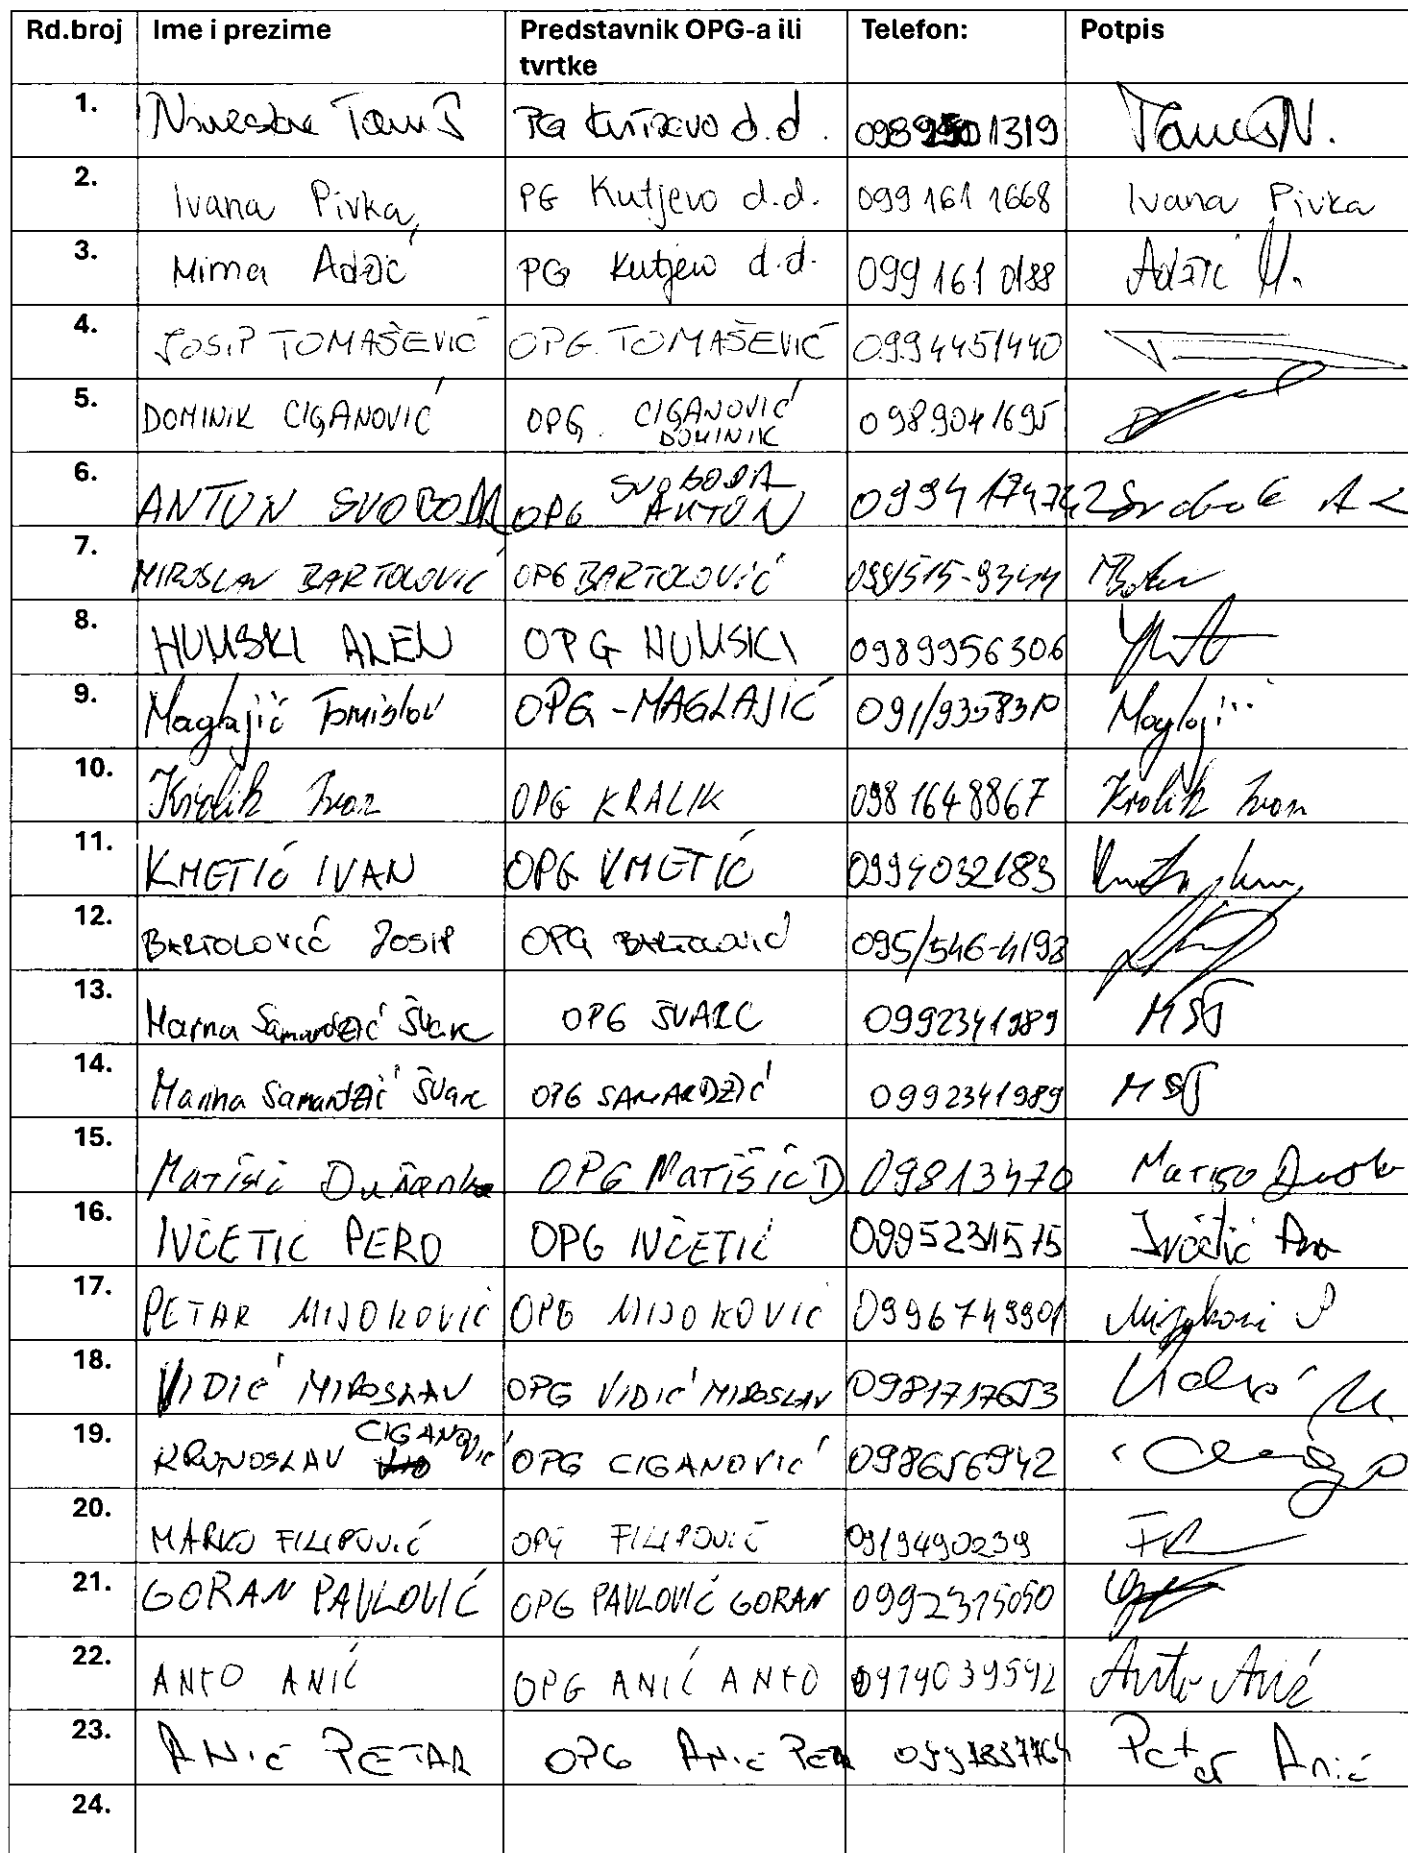 Rd.broj Ime i prezime Predstavnik OPG-a ili tvrtke Telefon: Potpis
1. PG Kutjevo d.d. 1319 N.
2. Ivana Pivka, PG Kutjevo d.d. 099 161 1668 Ivana Pivka
3. Mirna Adžić PG Kutjevo d.d. 099 161 0188 Adžić M.
4. JOSIP TOMAŠEVIĆ OPG. TOMAŠEVIĆ 0994451440
5. DOMINIK CIGANOVIĆ OPG. CIGANOVIĆ DOMINIK 0989041695
6. ANTUN SVOBODA OPG SVOBODA ANTUN
7. MIROSLAV BARTOLOVIĆ OPG BARTOLOVIĆ
8. HUMSKI ALEN OPG HUMSKI 0989956306
9. Maglajić Tomislav OPG - MAGLAJIĆ 091/9358310 Maglajić
10. Kralik Ivan OPG KRALIK 098 1648867 Kralik Ivan
11. KMETIĆ IVAN OPG KMETIĆ 0994032183
12. BARTOLOVIĆ JOSIP OPG BARTOLOVIĆ 095/546-4193
13. Marina Samardžić Švarc OPG ŠVARC 0992341989 MSŠ
14. Marina Samardžić Švarc OPG SAMARDŽIĆ 0992341989 MSŠ
15. Matišić Dušanka OPG MATIŠIĆ D. 09813470
16. IVČETIĆ PERO OPG IVČETIĆ 0995234575 Ivčetić Pero
17. PETAR MIJOKOVIĆ OPG MIJOKOVIC 0996749901
18. VIDIĆ MIROSLAV OPG VIDIĆ MIROSLAV 0981717653
19. KRUNOSLAV CIGANOVIĆ OPG CIGANOVIĆ 098656942
20. MARKO FILIPOVIĆ OPG FILIPOVIĆ 0919490239
21. GORAN PAVLOVIĆ OPG PAVLOVIĆ GORAN 0992315050
22. ANTO ANIĆ OPG ANIĆ ANTO 0919039592 Anto Anić
23. ANIĆ PETAR OPG Petar Anić
24.